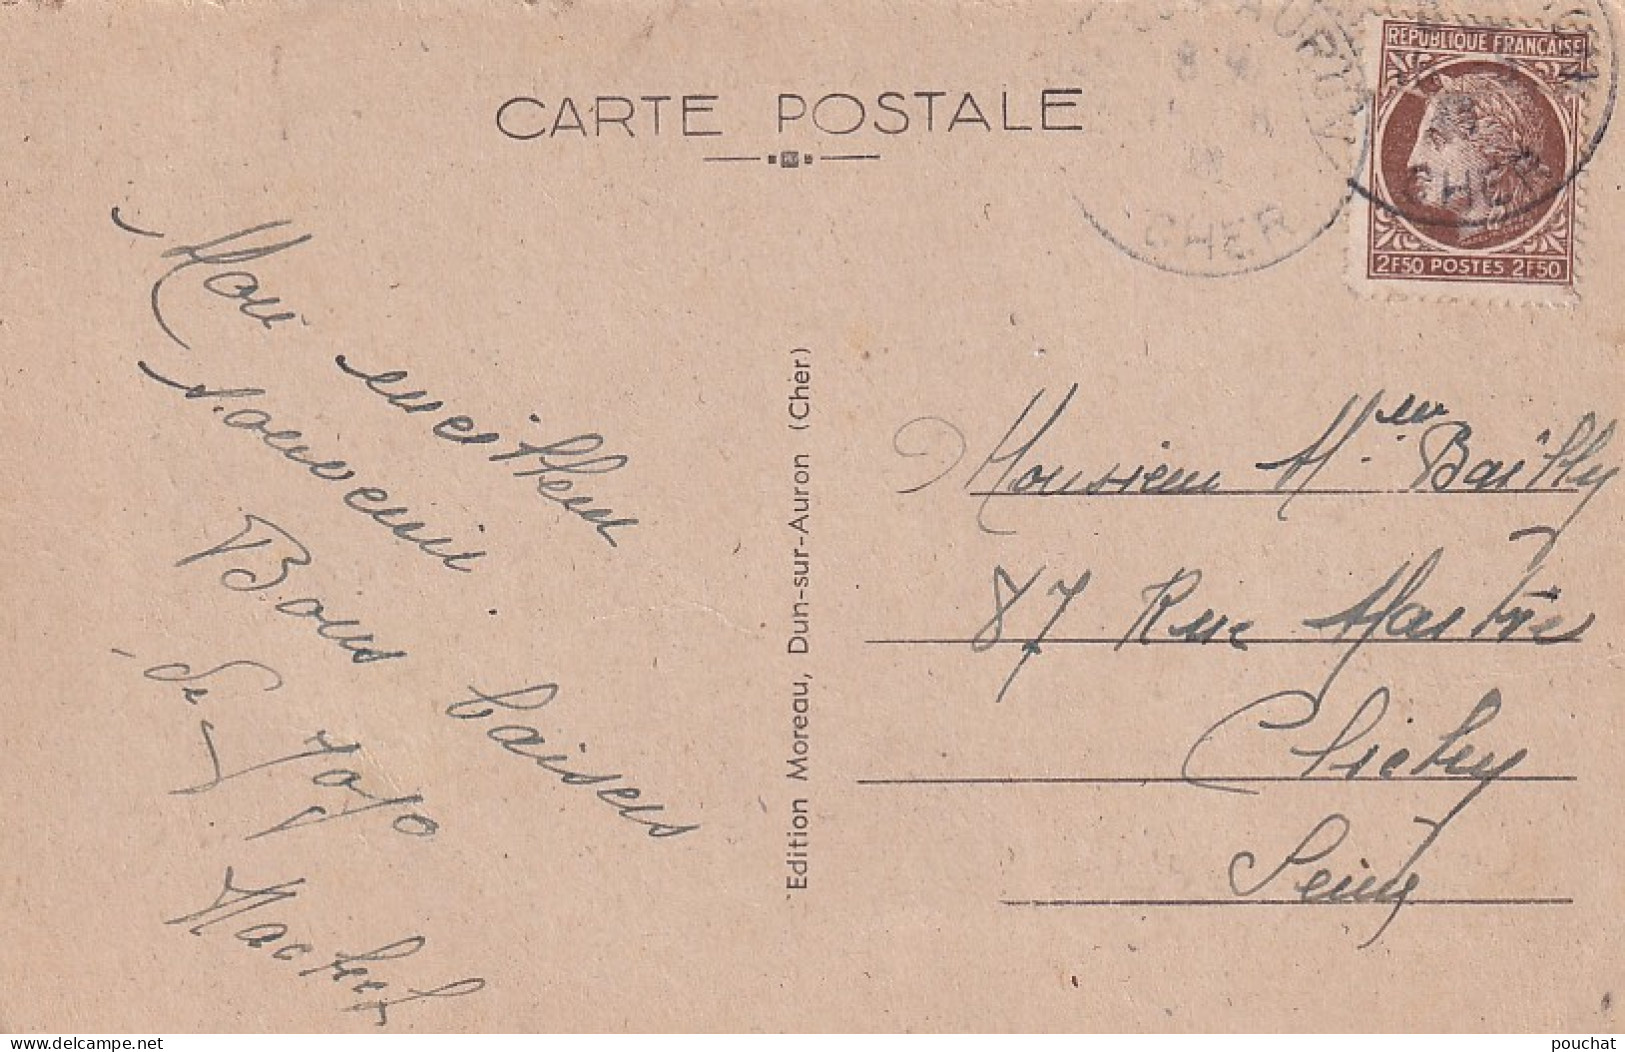 CARTE POSTALE
REPUBLIQUE FRANÇAISE
2F50 POSTES 2F50
CHER
CHER
Mon meilleur
souvenir.
Bons baisers
Jojo
Edition Moreau, Dun-sur-Auron (Cher)
Monsieur Mme Bailly
87 Rue Martre
Clichy
Seine
pouchat